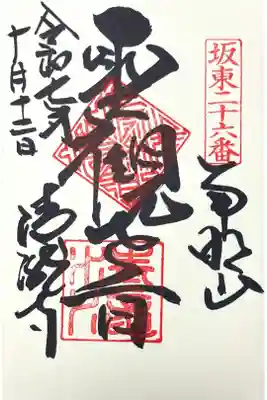 坂東二十六番
南明山
聖観世音
令和七年
十月十二日
清瀧寺